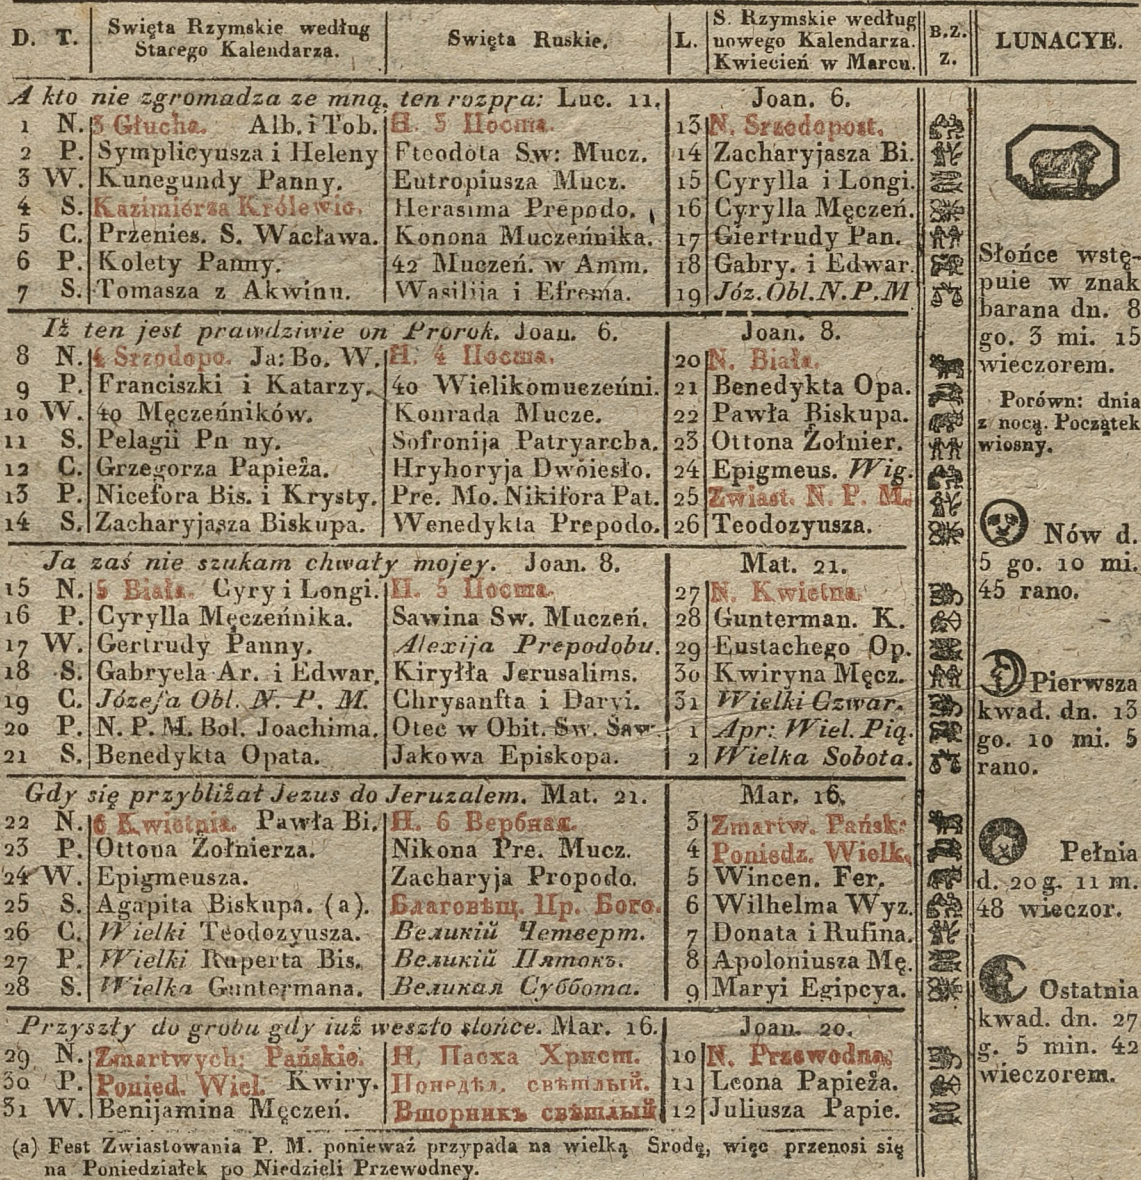 D. T. Swięta Rzymskie według Starego Kalendarza. Swięta Ruskie. L. S. Rzymskie według nowego Kalendarza. Kwiecień w Marcu. B.Z. Z. LUNACYE.
A kto nie zgromadza ze mną, ten rozpra: Luc. 11. Joan. 6.
1 N. 3 Głucha. Alb. i Tob. Н. 3 Посша. 13 N. Srzodopost.
2 P. Symplicyusza i Heleny Fteodota Sw: Mucz. 14 Zacharyjasza Bi.
3 W. Kunegundy Panny. Eutropiusza Mucz. 15 Cyrylla i Longi.
4 S. Kazimiérza Królewic. Herasima Prepodo. 16 Cyrylla Męczeń.
5 C. Przenies. S. Wacława. Konona Muczeńnika. 17 Giertrudy Pan.
6 P. Kolety Panny. 42 Muczeń. w Amm. 18 Gabry. i Edwar.
7 S. Tomasza z Akwinu. Wasilija i Efrema. 19 Józ. Obl. N. P. M
Iż ten jest prawdziwie on Prorok. Joan. 6. Joan. 8.
8 N. 4 Srzodopo. Ja: Bo. W. Н. 4 Посша. 20 N. Biała.
9 P. Franciszki i Katarzy. 40 Wielikomuczeńni. 21 Benedykta Opa.
10 W. 40 Męczeńników. Konrada Mucze. 22 Pawła Biskupa.
11 S. Pelagii Pn ny. Sofronija Patryarcha. 23 Ottona Żołnier.
12 C. Grzegorza Papieża. Hryhoryja Dwóiesło. 24 Epigmeus. Wig.
13 P. Nicefora Bis. i Krysty. Pre. Mo. Nikifora Pat. 25 Zwiast. N. P. M.
14 S. Zacharyjasza Biskupa. Wenedykta Prepodo. 26 Teodozyusza.
Ja zaś nie szukam chwały mojey. Joan. 8. Mat. 21.
15 N. 5 Biała. Cyry i Longi. Н. 5 Посша. 27 N. Kwietna.
16 P. Cyrylla Męczeńnika. Sawina Sw. Muczeń. 28 Gunterman. K.
17 W. Gertrudy Panny. Alexija Prepodobu. 29 Eustachego Op.
18 S. Gabryela Ar. i Edwar. Kiryłła Jerusalims. 30 Kwiryna Męcz.
19 C. Józefa Obl. N. P. M. Chrysanfta i Daryi. 31 Wielki Czwar.
20 P. N. P. M. Bol. Joachima. Otec w Obit. Sw. Saw. 1 Apr: Wiel. Pią.
21 S. Benedykta Opata. Jakowa Episkopa. 2 Wielka Sobota.
Gdy się przybliżał Jezus do Jeruzalem. Mat. 21. Mar. 16.
22 N. 6 Kwietnia. Pawła Bi. Н. 6 Вербная. 3 Zmartw. Pańsk:
23 P. Ottona Żołnierza. Nikona Pre. Mucz. 4 Poniedz. Wielk.
24 W. Epigmeusza. Zacharyja Propodo. 5 Wincen. Fer.
25 S. Agapita Biskupa. (a). Благовѣщ. Пр. Бого. 6 Wilhelma Wyz.
26 C. Wielki Teodozyusza. Великій Четверт. 7 Donata i Rufina.
27 P. Wielki Ruperta Bis. Великій Пятокъ. 8 Apoloniusza Mę.
28 S. Wielka Guntermana. Великая Суббота. 9 Maryi Egipcya.
Przyszły do grobu gdy iuż weszło słońce. Mar. 16. Joan. 20.
29 N. Zmartwych: Pańskie. Н. Пасха Христ. 10 N. Przewodna.
30 P. Ponied. Wiel. Kwiry. Понедѣл. свѣтлый. 11 Leona Papieża.
31 W. Benijamina Męczeń. Вторникъ свѣтлый 12 Juliusza Papie.
(a) Fest Zwiastowania P. M. ponieważ przypada na wielką Srodę, więc przenosi się
na Poniedziałek po Niedzieli Przewodney.
Słońce wstę-
puie w znak
barana dn. 8
go. 3 mi. 15
wieczorem.
Porówn: dnia
z nocą. Początek
wiosny.
Nów d.
5 go. 10 mi.
45 rano.
Pierwsza
kwad. dn. 13
go. 10 mi. 5
rano.
Pełnia
d. 20 g. 11 m.
48 wieczor.
Ostatnia
kwad. dn. 27
g. 5 min. 42
wieczorem.